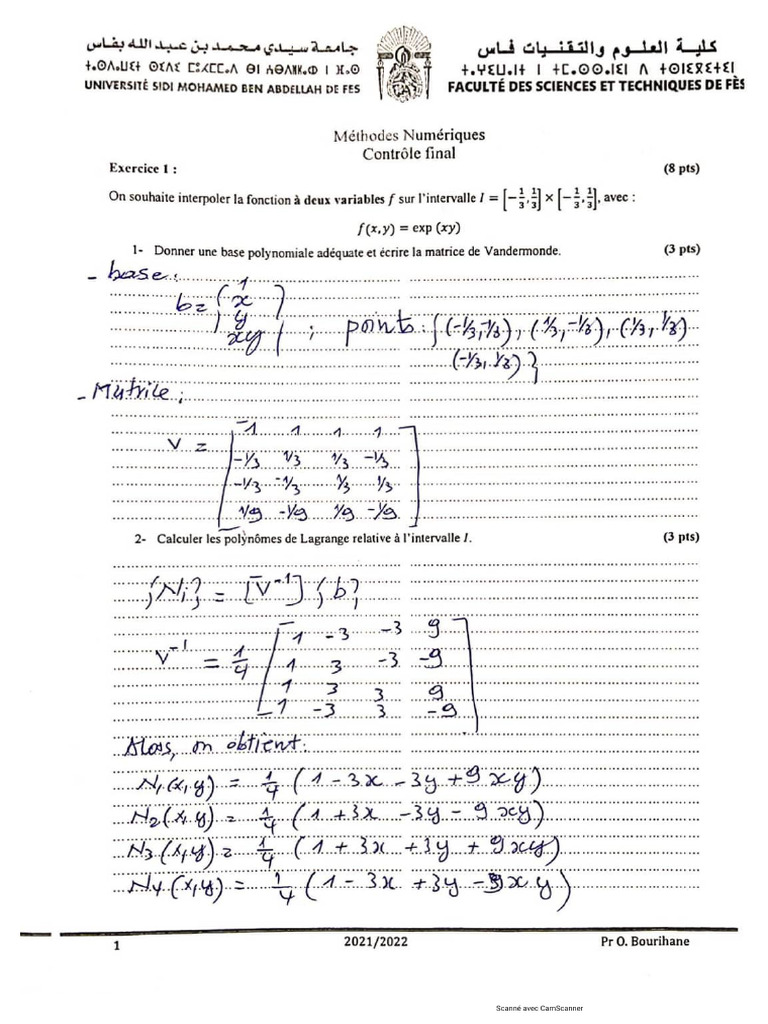 جامعة سيدي محمد بن عبد الله بفاس
ⵜⴰⵙⴷⴰⵡⵉⵜ ⵙⵉⴷⵉ ⵎⵓⵃⵎⵎⴰⴷ ⴱⵏ ⵄⴱⴷⵍⵍⴰⵀ ⵏ ⴼⴰⵙ
UNIVERSITÉ SIDI MOHAMED BEN ABDELLAH DE FES
كلية العلوم والتقنيات فاس
FACULTÉ DES SCIENCES ET TECHNIQUES DE FÈS
Méthodes Numériques
Contrôle final
Exercice 1 : (8 pts)
On souhaite interpoler la fonction à deux variables f sur l'intervalle I = [-1/3, 1/3] × [-1/3, 1/3], avec :
f(x, y) = exp (xy)
1- Donner une base polynomiale adéquate et écrire la matrice de Vandermonde. (3 pts)
- base :
b = { 1 x y xy } ; points : {(-1/3, -1/3), (1/3, -1/3), (1/3, 1/3)
(-1/3, 1/3)}
- Matrice :
V = [ 1 1 1 1
-1/3 1/3 1/3 -1/3
-1/3 -1/3 1/3 1/3
1/9 -1/9 1/9 -1/9 ]
2- Calculer les polynômes de Lagrange relative à l'intervalle I. (3 pts)
{Ni} = [V⁻¹] {b}
V⁻¹ = 1/4 [ 1 -3 -3 9
1 3 -3 -9
1 3 3 9
1 -3 3 -9 ]
Alors, on obtient :
N1(x,y) = 1/4 (1 - 3x - 3y + 9xy)
N2(x,y) = 1/4 (1 + 3x - 3y - 9xy)
N3(x,y) = 1/4 (1 + 3x + 3y + 9xy)
N4(x,y) = 1/4 (1 - 3x + 3y - 9xy)
1 2021/2022 Pr O. Bourihane
Scanné avec CamScanner